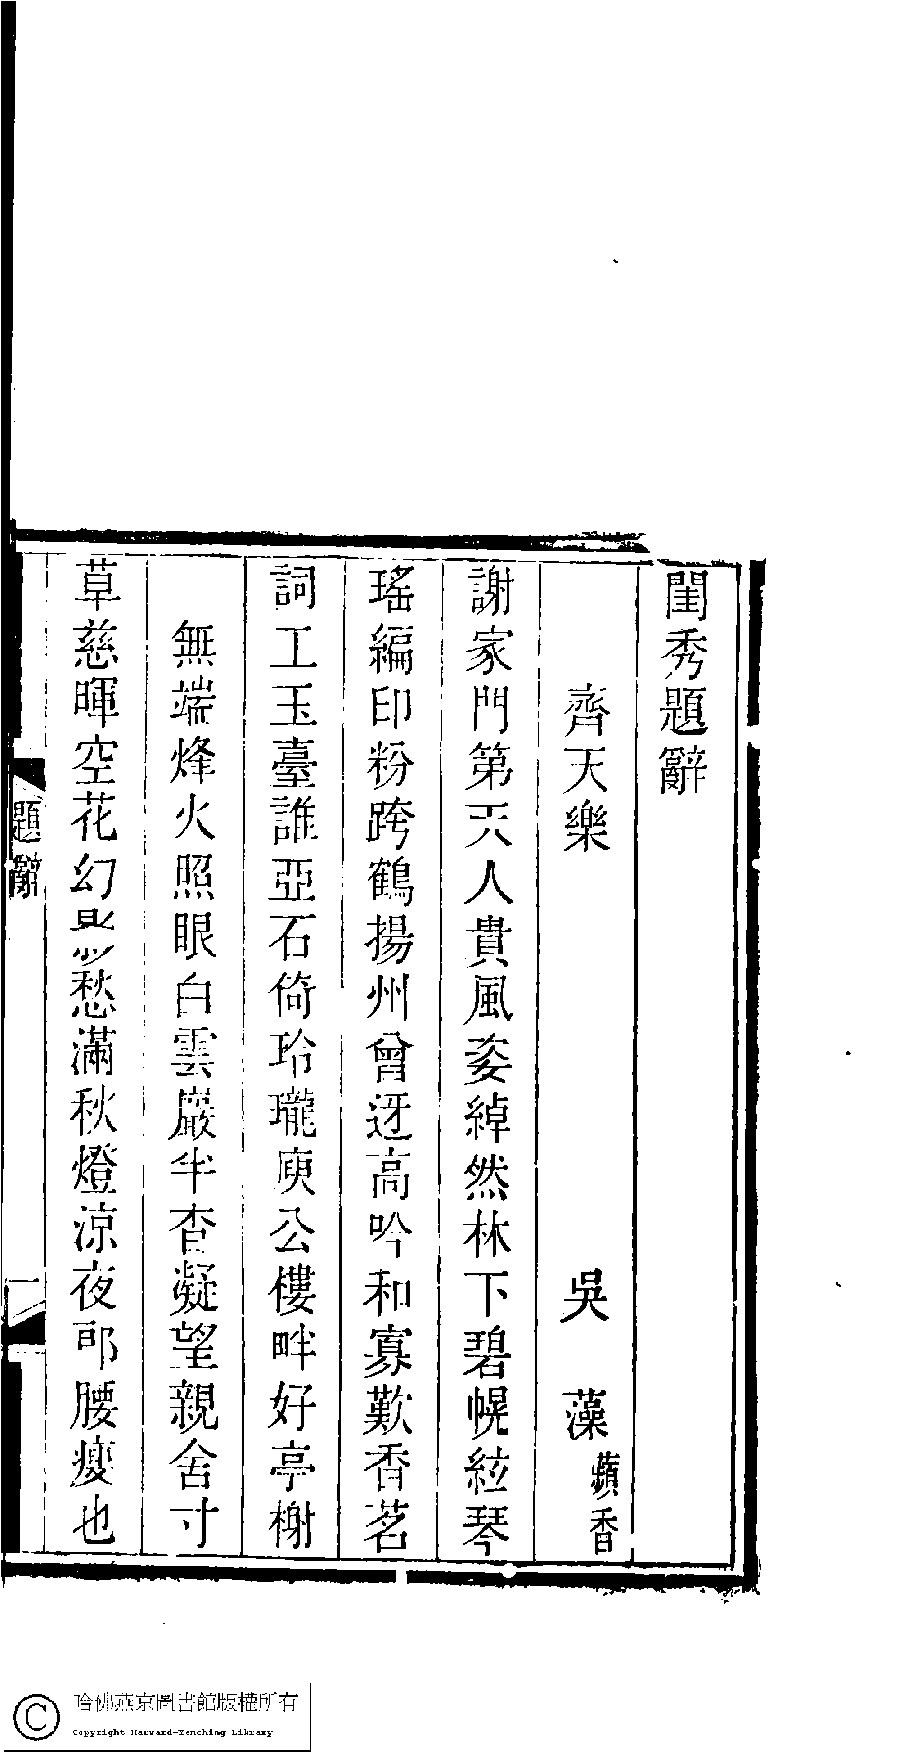 閨秀題辭
齊天樂 吳 藻 蘋香
謝家門第天人貴風姿綽然林下碧幌絃琴
瑤編印粉跨鶴揚州曾迓高吟和寡歎香茗
詞工玉臺誰亞石倚玲瓏庾公樓畔好亭榭
無端烽火照眼白雲巖半杳凝望親舍寸
草慈暉空花幻愁滿秋燈涼夜郎腰瘦也
題辭
一
哈佛燕京圖書館版權所有
Copyright Harvard-Yenching Library